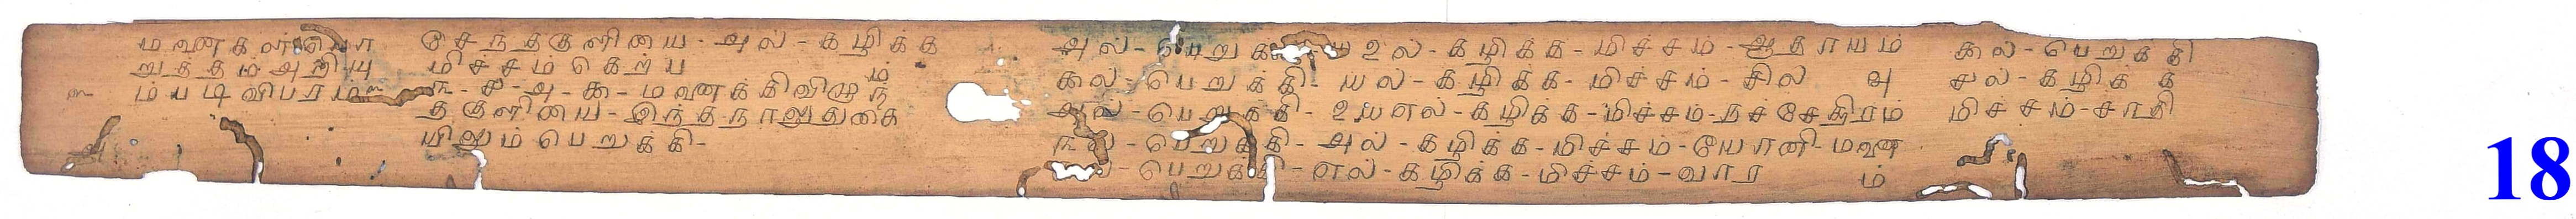 மவுணகளர்யோ
றுத்தம் அறியு
ம்படி விபரம்
சேந்தகுளியைய - அல் - கழிக்க
மிச்சம் கெற்ப ம்
௩ - ச - அ - க - மவணக்கிவிழுந்
தகுளியைய - இந்தநாலுதுகை
யிலும் பெறுக்கி -
அல் - பெறுக்கி உல் - கழிக்க - மிச்சம் - ஆதாயம்
கூல் - பெறுக்கி யல் - கழிக்க - மிச்சம் - சில அ
அல் - பெறுக்கி - உயஎல் - கழிக்க - மிச்சம் - நச்சேதிரம்
௩ல் - பெறுக்கி - அல் - கழிக்க - மிச்சம் - யோனி - மவண
பெறுக்கி - எல் - கழிக்க - மிச்சம் - வார ம்
கல் - பெறுக்கி
சல் - கழிக்க
மிச்சம் - சாதி
18